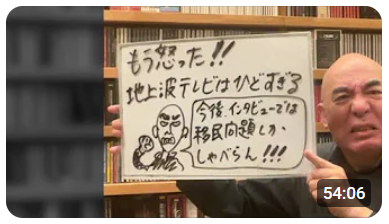 もう怒った!!
地上波テレビはひどすぎる
今後、インタビューでは
移民問題しか
しゃべらん!!!
54:06